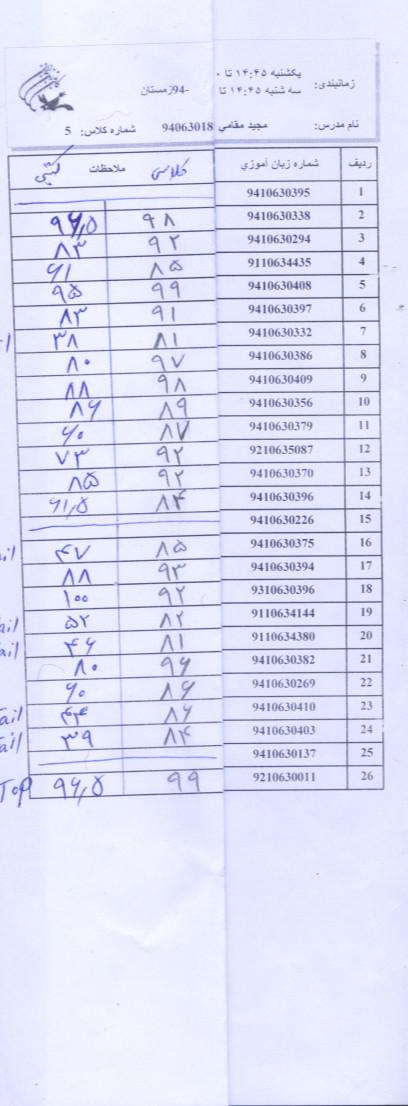 زمانبندی: یکشنبه ۱۴:۴۵ تا ۰
سه شنبه ۱۴:۴۵ تا -94زمستان
نام مدرس: مجید مقامي 94063018 شماره کلاس: 5
ردیف شماره زبان آموزي کلاسی ملاحظات کتبی
1 9410630395
2 9410630338 ۹۸ ۹۶,۵
3 9410630294 ۹۲ ۸۳
4 9110634435 ۸۵ ۶۱
5 9410630408 ۹۹ ۹۵
6 9410630397 ۹۱ ۸۳
7 9410630332 ۸۱ ۳۸
8 9410630386 ۹۷ ۸۰
9 9410630409 ۹۸ ۸۸
10 9410630356 ۸۹ ۸۶
11 9410630379 ۸۷ ۶۰
12 9210635087 ۹۲ ۷۳
13 9410630370 ۹۲ ۸۵
14 9410630396 ۸۴ ۶۱,۵
15 9410630226
16 9410630375 ۸۵ ۴۷ ail
17 9410630394 ۹۳ ۸۸
18 9310630396 ۹۲ ۱۰۰
19 9110634144 ۸۲ ۵۲ ail
20 9110634380 ۸۱ ۴۶ ail
21 9410630382 ۹۶ ۸۰
22 9410630269 ۸۶ ۶۰
23 9410630410 ۸۶ ۴۴ ail
24 9410630403 ۸۴ ۳۹ ail
25 9410630137
26 9210630011 ۹۹ ۹۶,۵ Top